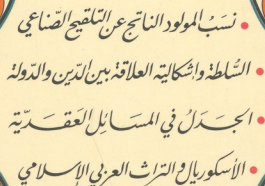 • نسَبُ المولود الناتج عن التلقيح الصّناعي
• السُّلطة وإشكالية العلاقة بين الدّين والدّولة
• الجَدَلُ في المسَائل العَقَديّة
• الأسكوريال والتراث العربي الإسلامي